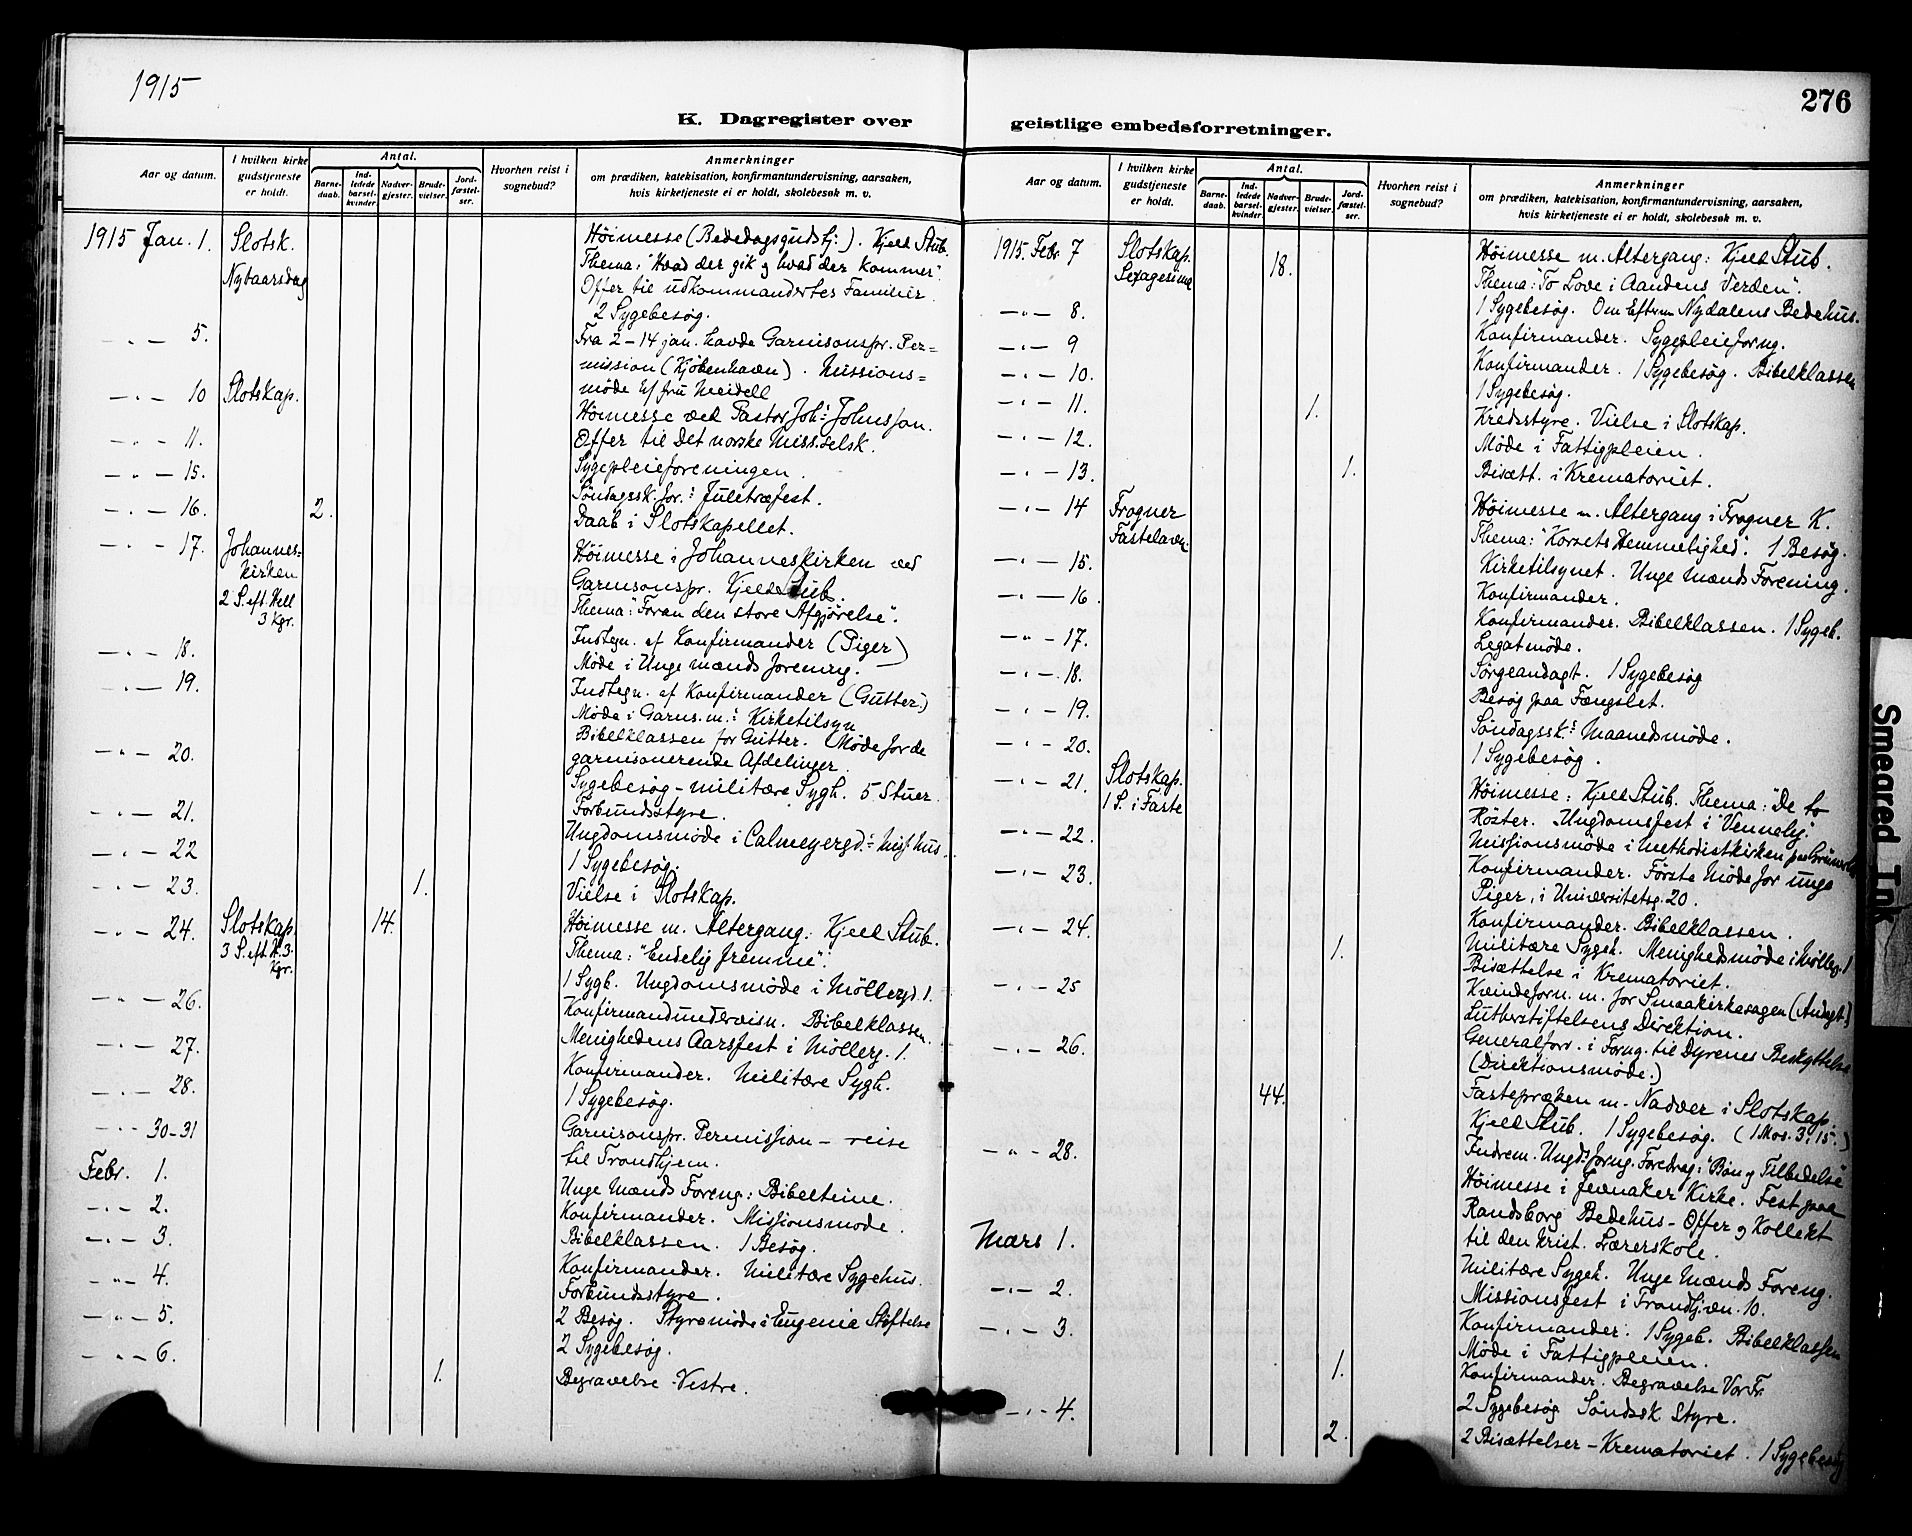 1915
276
K. Dagregister over geistlige embedsforretninger.
Aar og datum.
I hvilken kirke gudstjeneste er holdt.
Antal.
Barnedaab.
Indledede barselkvinder.
Nadvergjester.
Brudevielser.
Jordfæstelser.
Hvorhen reist i sognebud?
Anmerkninger
om prædiken, katekisation, konfirmantundervisning, aarsaken,
hvis kirketjeneste ei er holdt, skolebesøk m. v.
1915 Jan. 1. Slotsk. Høimesse (Bededagsgudstj:). Kjeld Stub.
Nytaarsdag Thema: "Hvad der gik og hvad der kommer".
Offer til udkommandertes Familier.
2 Sygebesøg.
— " — 5. Fra 2–14 jan. havde Garnisonspr. Per=
mission (Kjøbenhavn). Missions=
møde
— " — 10 Slotskap. Høimesse ved Pastor Joh: Johnsson.
Offer til Det norske Miss.selsk.
— " — 11. Sygepleieforeningen.
— " — 15. Søndagssk. for: Juletræfest.
— " — 16. 2. Daab i Slotskapellet.
— " — 17. Johannes= Høimesse i Johanneskirken ved
kirken Garnisonspr. Kjeld Stub.
2 S. eft. Hell 3 Kgr. Thema: "Foran den store Afgjørelse".
— " — 18. Indtegn. af Konfirmander (Piger)
Møde i Unge Mænds Forening.
— " — 19. Indtegn. af Konfirmander (Gutter)
Møde i Garns.m.: Kirketilsyn
— " — 20. Bibelklassen for Gutter. Møde for de
garnisonerende Afdelinger.
Sygebesøg – militære Sygh. 5 Stuer.
— " — 21. Forbundsstyre.
Ungdomsmøde i Calmeyergd: Miss.hus.
— " — 22 1 Sygebesøg.
— " — 23. 1. Vielse i Slotskap.
— " — 24. Slotskap. 14. Høimesse m. Altergang: Kjeld Stub.
3 S. eft. H. 3. Kgr. Thema: "Endelig fremme".
1 Sygb. Ungdomsmøde i Møllergd. 1.
— " — 26. Konfirmandundervisn. Bibelklassen.
— " — 27. Menighedens Aarsfest i Møllerg. 1.
— " — 28. Konfirmander. Militære Sygh.
1 Sygebesøg.
— " — 30–31 Garnisonspr. Permission – reise
til Trondhjem.
Febr. 1. Unge Mænds Foreng: Bibeltime.
— " — 2. Konfirmander. Missionsmøde.
— " — 3. Bibelklassen. 1 Besøg.
— " — 4. Konfirmander. Militære Sygehus.
Forbundsstyre.
— " — 5. 2 Besøg. Styremøde i Eugenia Stiftelse
— " — 6. 2 Sygebesøg.
1. Begravelse - Vestre.
Aar og datum.
I hvilken kirke gudstjeneste er holdt.
Antal.
Barnedaab.
Indledede barselkvinder.
Nadvergjester.
Brudevielser.
Jordfæstelser.
Hvorhen reist i sognebud?
Anmerkninger
om prædiken, katekisation, konfirmantundervisning, aarsaken,
hvis kirketjeneste ei er holdt, skolebesøk m. v.
1915. Febr. 7 Slotskap. 18. Høimesse m. Altergang: Kjeld Stub.
Sexagesima Thema: "To Love i Aandens Verden".
1 Sygebesøg. Om Efterm Nydalens Bedehus.
— " — 8. Konfirmander. Sygepleieforng.
— " — 9 Konfirmander. 1 Sygebesøg. Bibelklassen
— " — 10. 1 Sygebesøg.
— " — 11. 1. Kredsstyre. Vielse i Slotskap.
— " — 12. Møde i Fattigpleien.
— " — 13. 1. Bisætt. i Krematoriet.
— " — 14 Frogner Høimesse m. Altergang i Frogner K.
Fastelavn: Thema: "Korsets Hemmelighed". 1 Besøg.
— " — 15. Kirketilsynet. Unge Mænds Forening.
— " — 16. Konfirmander.
Konfirmander. Bibelklassen. 1 Sygeb.
— " — 17. Legatmøde.
— " — 18. Sørgeandagt. 1 Sygebesøg
— " — 19. Besøg paa Fængslet.
— " — 20. Søndagssk: Maanedsmøde.
1 Sygebesøg.
— " — 21. Slotskap. Høimesse: Kjeld Stub. Thema: "De to
1 S. i Faste Røster. Ungdomsfest i "Vennelig".
— " — 22. Missionsmøde i Methodistkirken paa
— " — 23. Konfirmander. Første Møde for unge
Piger, i Universitetsg. 20.
— " — 24. Konfirmander. Bibelklassen.
1. Militære Sygeh. Menighedsmøde i Møllerg. 1
Bisættelse i Krematoriet.
— " — 25 Kvindeforn. m. for Smaakirkesagen (Andagt)
Lutherstiftelsens Direktion.
— " — 26. Generalforr. i Forng. til Dyrenes Beskyttelse
(Direktionsmøde.)
44. Fastepræken m. Nadver i Slotskap.
Kjeld Stub. 1 Sygebesøg. (1 Mos. 3, 15.)
— " — 28. Indrem. Ungd.forng. Foredrag: "Bøn og Tilbedelse"
Høimesse i Jevnaker Kirke. Fest paa
Randsborg Bedehus – Offer og Kollekt
Mars 1. til den krist. Lærerskole.
Militære Sygeh. Unge Mænds Foreng.
— " — 2. Missionsfest i Trondhjvn. 10.
— " — 3. Konfirmander. 1 Sygeb. Bibelklassen
Møde i Fattigpleien.
1. Konfirmander. Begravelse Vor Fr.
— " — 4. 2 Sygebesøg Søndssk. Styre.
2. 2 Bisættelser – Krematoriet. 1 Sygebesøg
Smeared Ink